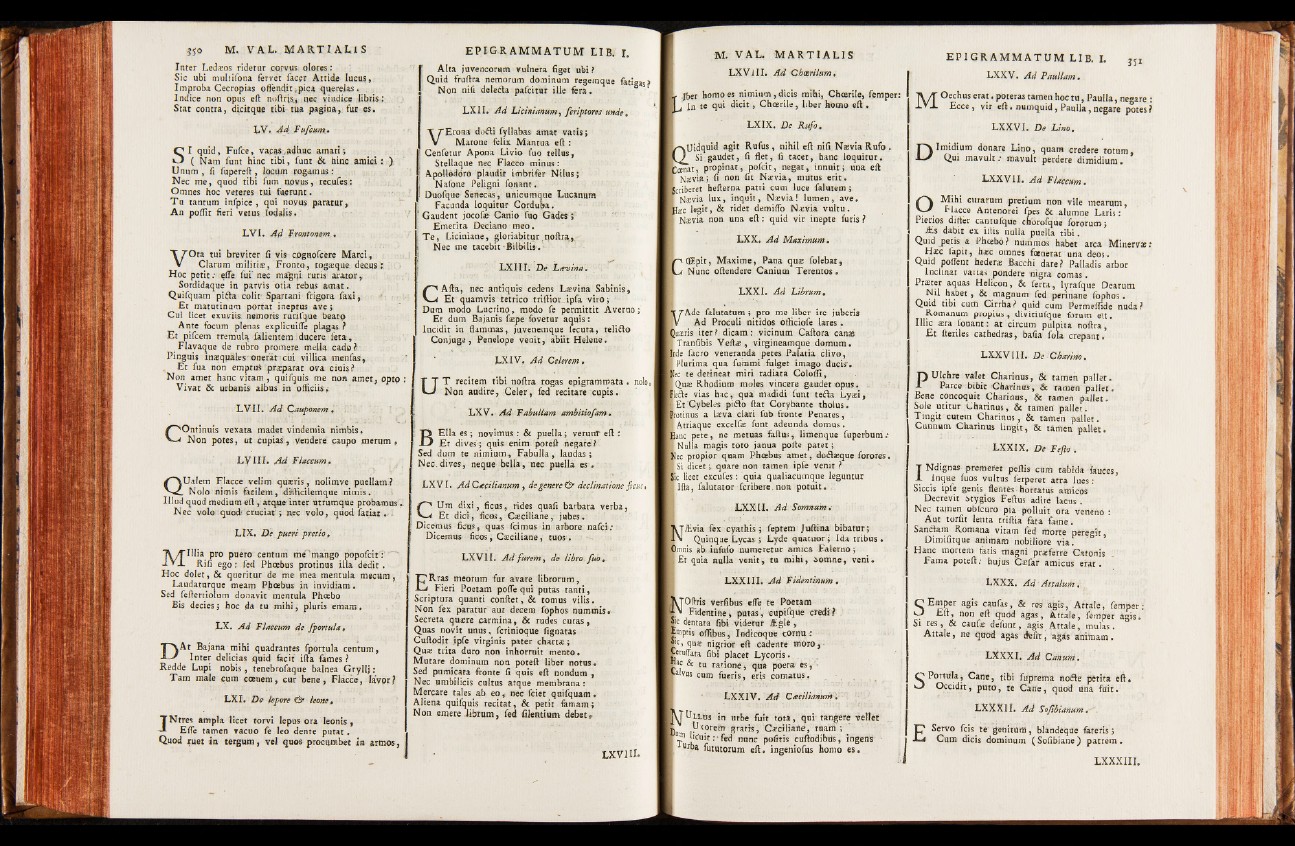 350 M. VAL. MARTIALIS
Inter Ledæos ridetur corvus olores:
Sic ubi multiſona fervet ſacer Attide lucus,
Improba Cecropias offendit pica querelas.
Indice non opus eſt noſtris, nec vindice libris:
Stat contra, dicitque tibi tua pagina, fur es.
LV. Ad Fuſcum.
SI quid, Fuſce, vacas adhuc amari;
( Nam ſunt hinc tibi, ſunt & hinc amici: )
Unum, ſi ſupereſt, locum rogamus:
Nec me, quod tibi ſum novus, recuſes:
Omnes hoc veteres tui fuerunt.
Tu tantum inſpice, qui novus paratur,
An poſſit fieri vetus ſodalis.
LVI. Ad Frontonem.
VOta tui breviter ſi vis cognoſcere Marci,
Clarum militiæ, Fronto, togæque decus:
Hoc petit: eſſe ſui nec magni ruris arator,
Sordidaque in parvis otia rebus amat.
Quiſquam picta colit Spartani frigora ſaxi,
Et matutinum portat ineptus ave;
Cui licet exuviis nemoris rutiſque beato
Ante focum plenas explicuiſſe plagas?
Et piſcem tremula ſalientem ducere ſeta,
Flavaque de rubro promere mella cado?
Pinguis inæquales onerat cui villica menſas,
Et ſua non emptus præparat ova cinis?
Non amet hanc vitam, quiſquis me non amet, opto:
Vivat & urbanis albus in officiis.
LVII. Ad Cauponem.
COntinuis vexata madet vindemia nimbis.
Non potes, ut cupias, vendere caupo merum.
LVIII. Ad Flaccum.
QUalem Flacce velim quæris, nolimve puellam?
Nolo nimis facilem, difficilemque nimis.
Illud quod medium eſt, atque inter utrumque probamus.
Nec volo quod cruciat; nec volo, quod ſatiat.
LIX. De pueri pretio.
MIllia pro puero centum me mango popoſcit:
Riſi ego: ſed Phœbus protinus illa dedit.
Hoc dolet, & queritur de me mea mentula mecum,
Laudaturque meam Phœbus in invidiam.
Sed ſeſtertiolum donavit mentula Phœbo
Bis decies; hoc da tu mihi, pluris emam.
LX. Ad Flaccum de ſportula.
DAt Bajana mihi quadrantes ſportula centum,
Inter delicias quid facit iſta fames?
Redde Lupi nobis, tenebroſaque balnea Grylli:
Tam male cum cœnem, cur bene, Flacce, lavor?
LXI. De lepore & leone.
INtres ampla licet torvi lepus ora leonis,
Eſſe tamen vacuo ſe leo dente putat.
Quod ruet in tergum, vel quos procumbet in armos,
EPIGRAMMATUM LIB. I.
Alta juvencorum vulnera figet ubi?
Quid fruſtra nemorum dominum regemque fatigas?
Non niſi delecta paſcitur ille fera.
LXII. Ad Licinianum, ſcriptores unde.
VErona docti ſyllabas amat vatis;
Marone felix Mantua eſt:
Cenſetur Apona Livio ſuo tellus,
Stellaque nec Flacco minus:
Apollodoro plaudit imbrifer Nilus;
Naſone Peligni ſonant.
Duoſque Senecas, unicumque Lucanum
Facunda loquitur Corduba.
Gaudent jocoſæ Canio ſuo Gades;
Emerita Deciano meo.
Te, Liciniane, gloriabitur noſtra,
Nec me tacebit Bilbilis.
LXIII. De Lævina.
CAſta, nec antiquis cedens Lævina Sabinis,
Et quamvis tetrico triſtior ipſa viro;
Dum modo Lucrino, modo ſe permittit Averno;
Et dum Bajanis ſæpe fovetur aquis:
Incidit in flammas, juvenemque ſecuta, relicto
Conjuge, Penelope venit, abiit Helene.
LXIV. Ad Celerem.
UT recitem tibi noſtra rogas epigrammata. nolo,
Non audire, Celer, ſed recitare cupis.
LXV. Ad Fabullam ambitioſam.
BElla es; novimus: & puella; verum eſt:
Et dives; quis enim poteſt negare?
Sed dum te nimium, Fabulla, laudas;
Nec dives, neque bella, nec puella es.
LXVI. Ad Cæcilianum, de genere & declinatione ficus.
CUm dixi, ficus, rides quaſi barbara verba,
Et dici, ficos, Cæciliane, jubes.
Dicemus ficus, quas ſcimus in arbore naſci:
Dicemus ficos, Cæciliane, tuos.
LXVII. Ad furem, de libro ſuo.
ERras meorum fur avare librorum,
Fieri Poetam poſſe qui putas tanti,
Scriptura quanti conſtet, & tomus vilis.
Non ſex paratur aut decem ſophos nummis.
Secreta quære carmina, & rudes curas,
Quas novit unus, ſcrinioque ſignatas
Cuſtodit ipſe virginis pater chartæ;
Quæ trita duro non inhorruit mento.
Mutare dominum non poteſt liber notus.
Sed pumicata fronte ſi quis eſt nondum,
Nec umbilicis cultus atque membrana:
Mercare tales ab eo, nec ſciet quiſquam.
Aliena quiſquis recitat, & petit famam;
Non emere librum, ſed ſilentium debet.
LXVIII.
M. VAL. MARTIALIS
LXVIII. Ad Chœrilum.
LIber homo es nimium, dicis mihi, Chœrile, ſemper:
In te qui dicit, Chœrile, liber homo eſt.
LXIX. De Rufo.
QUidquid agit Rufus, nihil eſt niſi Nævia Rufo.
Si gaudet, ſi flet, ſi tacet, hanc loquitur.
Cœnat, propinat, poſcit, negat, innuit; una eſt
Nævia; ſi non ſit Nævia, mutus erit.
Scriberet heſterna patri cum luce ſalutem;
Nævia lux, inquit, Nævia! lumen, ave.
Hæc legit, & ridet demiſſo Nævia vultu.
Nævia non una eſt: quid vir inepte furis?
LXX. Ad Maximum.
COEpit, Maxime, Pana quæ ſolebat,
Nunc oſtendere Canium Terentos.
LXXI. Ad Librum.
VAde ſalutatum; pro me liber ire juberis
Ad Proculi nitidos officioſe lares.
Quæris iter? dicam: vicinum Caſtora canæ
Tranſibis Veſtæ, virgineamque domum.
Inde ſacro veneranda petes Palatia clivo,
Plurima qua ſummi fulget imago ducis.
Nec te detineat miri radiata Coloſſi,
Quæ Rhodium moles vincere gaudet opus.
Flecte vias hac, qua madidi ſunt tecta Lyæi,
Et Cybeles picto ſtat Corybante tholus.
Protinus a læva clari ſub fronte Penates,
Atriaque excelſæ ſunt adeunda domus.
Hanc pete, ne metuas faſtus, limenque ſuperbum:
Nulla magis toto janua poſte patet;
Nec propior quam Phœbus amet, doctæque ſorores.
Si dicet; quare non tamen ipſe venit?
Sic licet excuſes: quia qualiacumque leguntur
Iſta, ſalutator ſcribere non potuit.
LXXII. Ad Somnum.
NÆvia ſex cyathis; ſeptem Juſtina bibatur;
Quinque Lycas; Lyde quatuor; Ida tribus.
Omnis ab infuſo numeretur amica Falerno;
Et quia nulla venit, tu mihi, Somne, veni.
LXXIII. Ad Fidentinum.
NOſtris verſibus eſſe te Poetam
Fidentine, putas, cupiſque credi?
Sic dentata ſibi videtur Ægle,
Emptis oſſibus, Indicoque cornu:
Sic, quæ nigrior eſt cadente moro,
Ceruſſata ſibi placet Lycoris.
Hac & tu ratione; qua poeta es,
Calvus cum fueris, eris comatus.
LXXIV. Ad Cæcilianum.
NUllus in urbe fuit tota, qui tangere vellet
Uxorem gratis, Cæciliane, tuam;
Dum licuit: ſed nunc poſitis cuſtodibus, ingens
Turba fututorum eſt. ingenioſus homo es.
EPIGRAMMATUM LIB. I. 351
LXXV. Ad Paullam.
MOechus erat. poteras tamen hoc tu, Paulla, negare:
Ecce, vir eſt. numquid, Paulla, negare potes?
LXXVI. De Lino.
DImidium donare Lino, quam credere totum,
Qui mavult: mavult perdere dimidium.
LXXVII. Ad Flaccum.
O Mihi curarum pretium non vile mearum,
Flacce Antenorei ſpes & alumne Laris:
Pierios differ cantuſque choroſque ſororum;
Æs dabit ex iſtis nulla puella tibi.
Quid petis a Phœbo? nummos habet arca Minervæ:
Hæc ſapit, hæc omnes fœnerat una deos.
Quid poſſent hederæ Bacchi dare? Palladis arbor
Inclinat varias pondere nigra comas.
Præter aquas Helicon, & ſerta, lyraſque Dearum
Nil habet, & magnum ſed perinane ſophos.
Quid tibi cum Cirrha? quid cum Permeſſide nuda?
Romanum propius, divitiuſque forum eſt.
Illic æra ſonant: at circum pulpita noſtra,
Et ſteriles cathedras, baſia ſola crepant.
LXXVIII. De Charino.
PUlchre valet Charinus, & tamen pallet.
Parce bibit Charinus, & tamen pallet.
Bene concoquit Charinus, & tamen pallet.
Sole utitur Charinus, & tamen pallet.
Tingit cutem Charinus, & tamen pallet.
Cunnum Charinus lingit, & tamen pallet.
LXXIX. De Feſto.
INdignas premeret peſtis cum tabida fauces,
Inque ſuos vultus ſerperet atra lues:
Siccis ipſe genis flentes hortatus amicos
Decrevit Stygios Feſtus adire lacus.
Nec tamen obſcuro pia polluit ora veneno:
Aut torſit lenta triſtia fata fame.
Sanctam Romana vitam ſed morte peregit,
Dimiſitque animam nobiliore via.
Hanc mortem fatis magni præferre Catonis
Fama poteſt: hujus Cæſar amicus erat.
LXXX. Ad Attalum.
SEmper agis cauſas, & res agis, Attale, ſemper:
Eſt, non eſt quod agas, Attale, ſemper agis.
Si res, & cauſæ deſunt, agis Attale, mulas.
Attale, ne quod agas deſit, agas animam.
LXXXI. Ad Canum.
SPortula, Cane, tibi ſuprema nocte petita eſt.
Occidit, puto, te Cane, quod una fuit.
LXXXII. Ad Soſibianum.
E Servo ſcis te genitum, blandeque fateris;
Cum dicis dominum (Soſibiane) patrem.
LXXXIII.